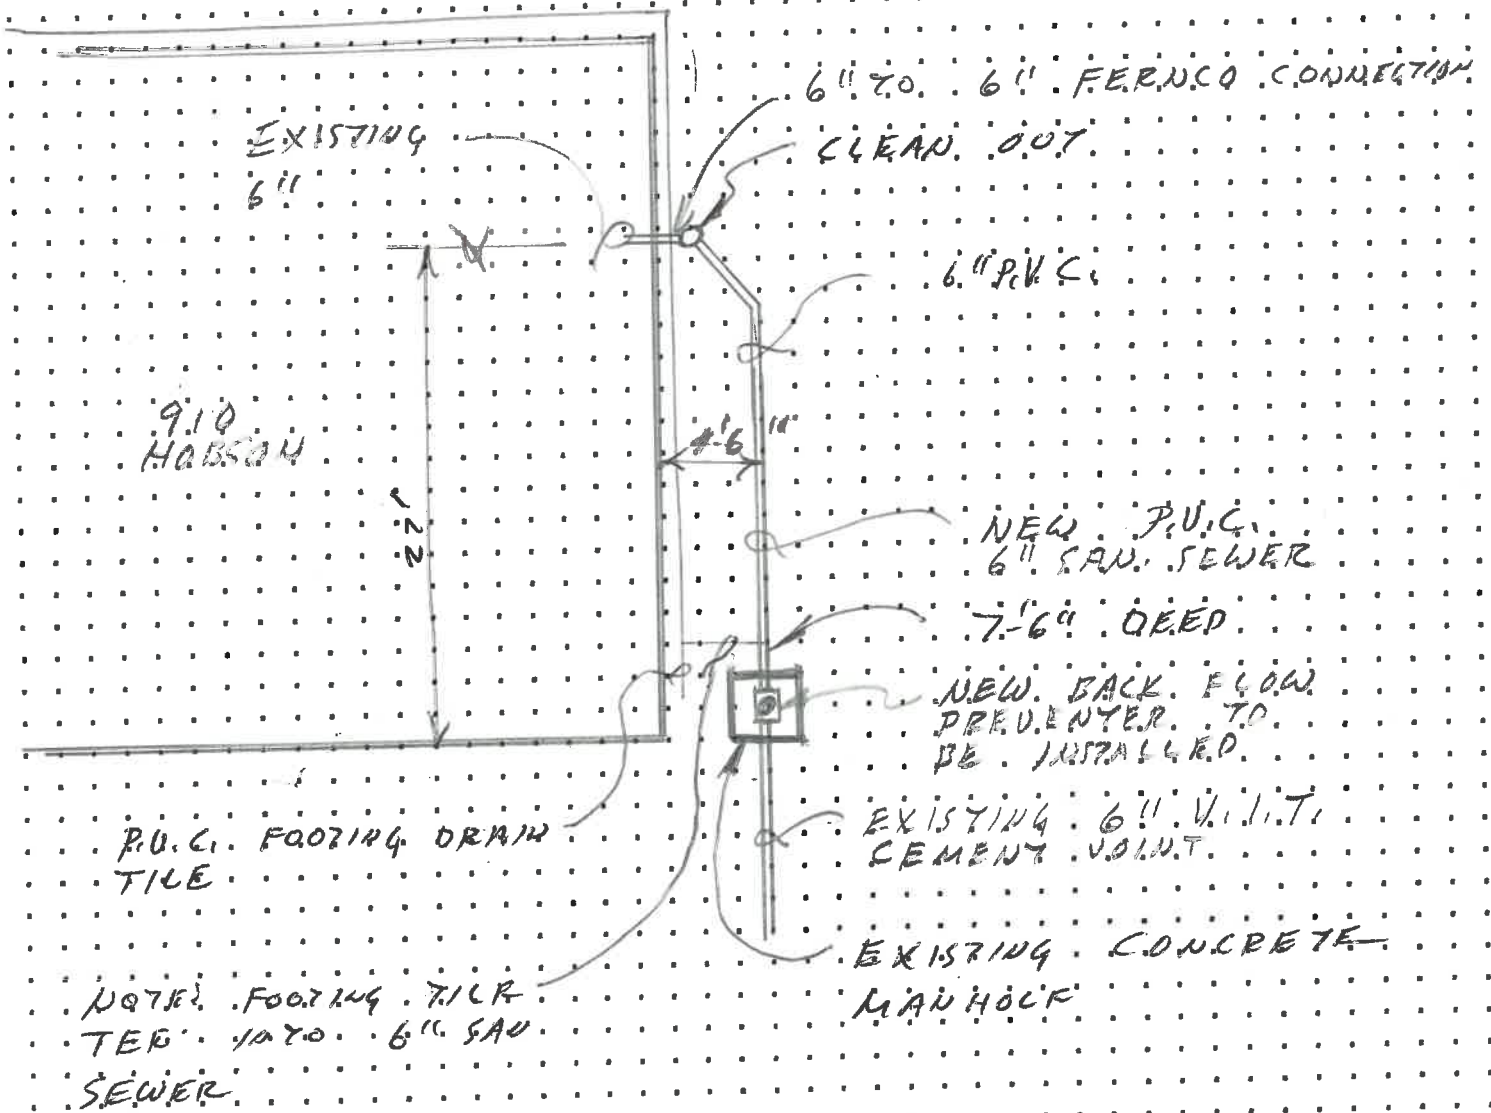 6" TO 6" FERNCO CONNECTION
CLEAN OUT
EXISTING
6"
6" P.V.C.
910
HOBSON
4'-6"
22'
NEW P.V.C.
6" SAN. SEWER
7'-6" DEEP
NEW BACK FLOW
PREVENTER TO
BE INSTALLED
P.V.C. FOOTING DRAIN
TILE
EXISTING 6" V.I.T.
CEMENT JOINT
EXISTING CONCRETE
MANHOLE
NOTE: FOOTING TILE
TEE INTO 6" SAN
SEWER